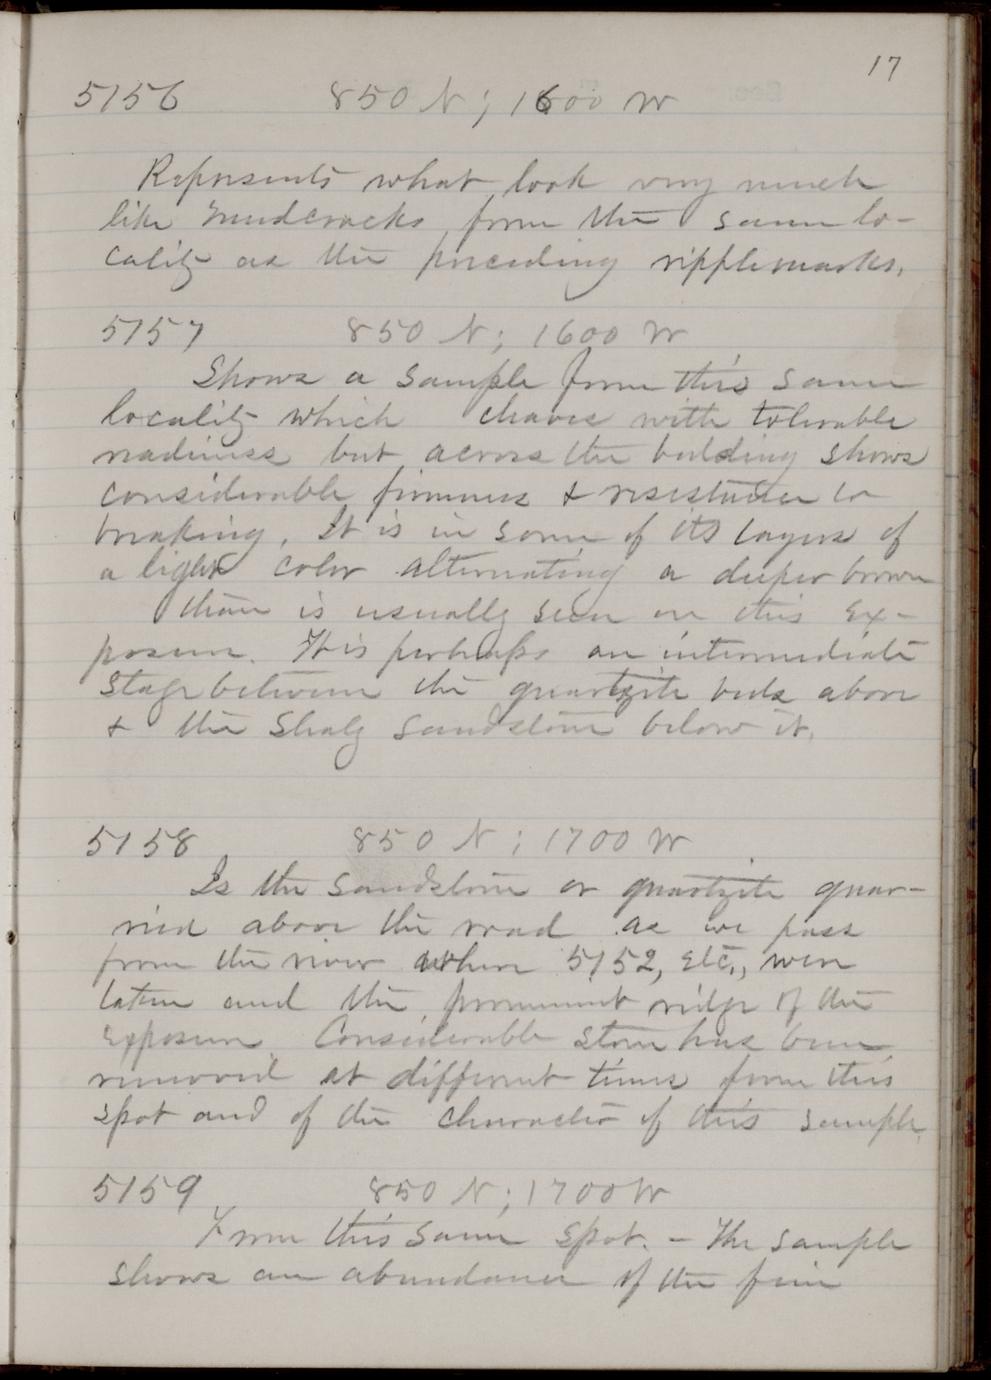 17
5156 850 N; 1600 W
Represents what look very much
like mudcracks, from the same lo-
cality as the preceding ripplemarks.
5157 850 N; 1600 W
Shows a sample from this same
locality which cleaves with tolerable
readiness but across the bedding shows
considerable firmness & resistance to
breaking. It is in some of its layers of
a light color alternating a deeper brown
than is usually seen on this ex-
posure. It is perhaps an intermediate
stage between the quartzite beds above
& the shaly sandstone below it.
5158 850 N; 1700 W
Is the sandstone or quartzite quar-
ried above the road as we pass
from the river where 5152, etc., were
taken and the prominent ridge of the
exposure. Considerable stone has been
removed at different times from this
spot and of the character of this sample.
5159 850 N; 1700 W
From this same spot. - The sample
shows an abundance of the fine